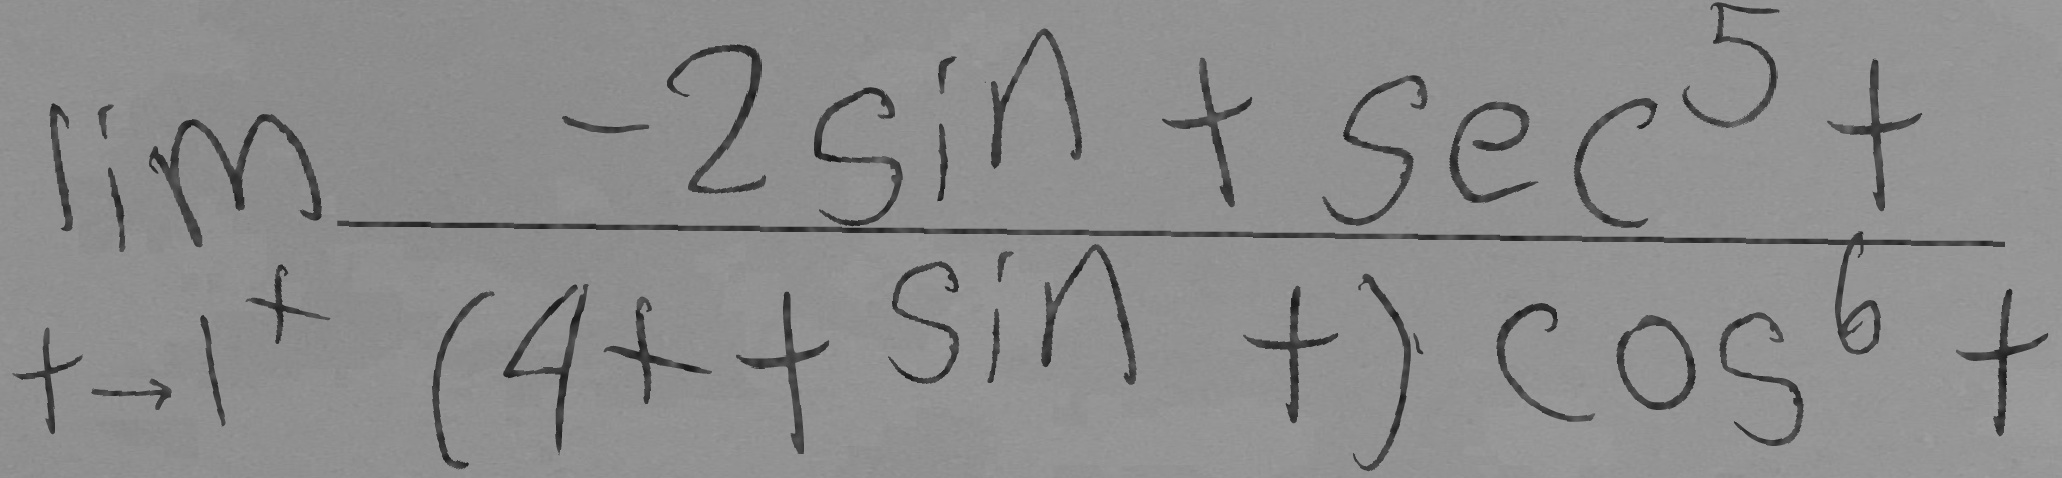 \lim_{t \to 1^+} \frac{-2 \sin t \sec^5 t}{(4 + t \sin t) \cos^6 t}